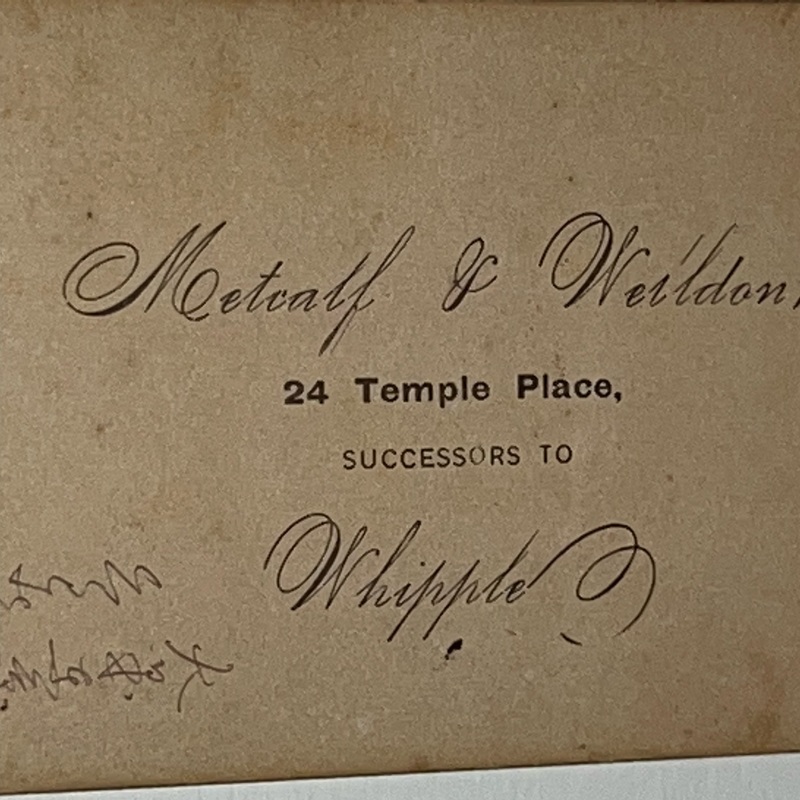 Metcalf & Welldon,
24 Temple Place,
SUCCESSORS TO
Whipple